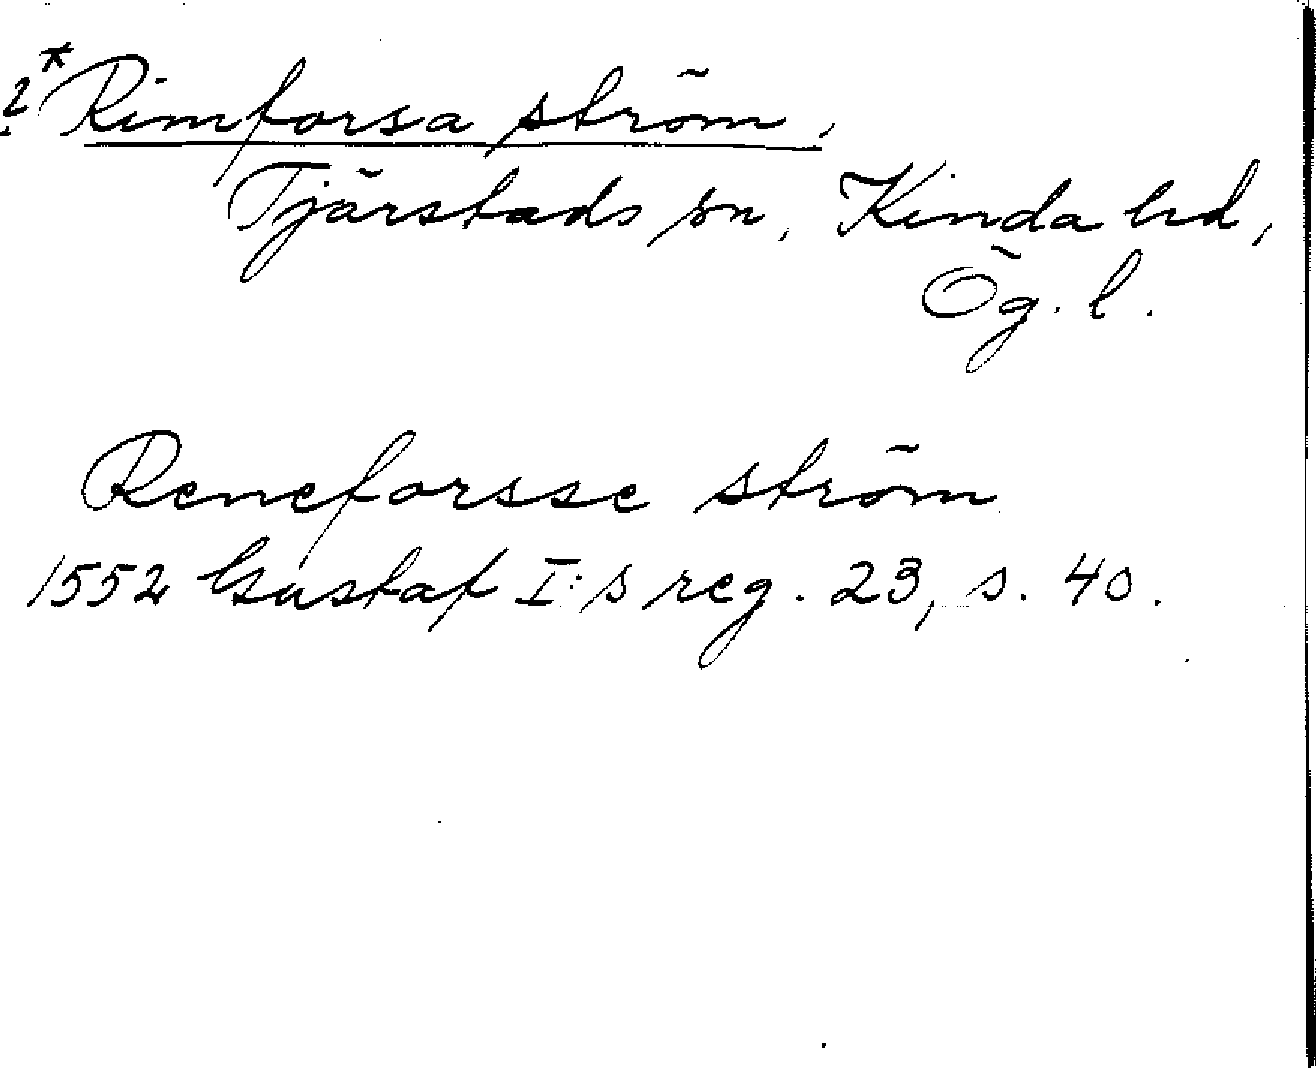 ?* Rimforsa ström,
Tjärstads sn, Kinda hd,
Ög. l.
Reneforsse ström
1552 Gustaf I:s reg. 23, s. 40.